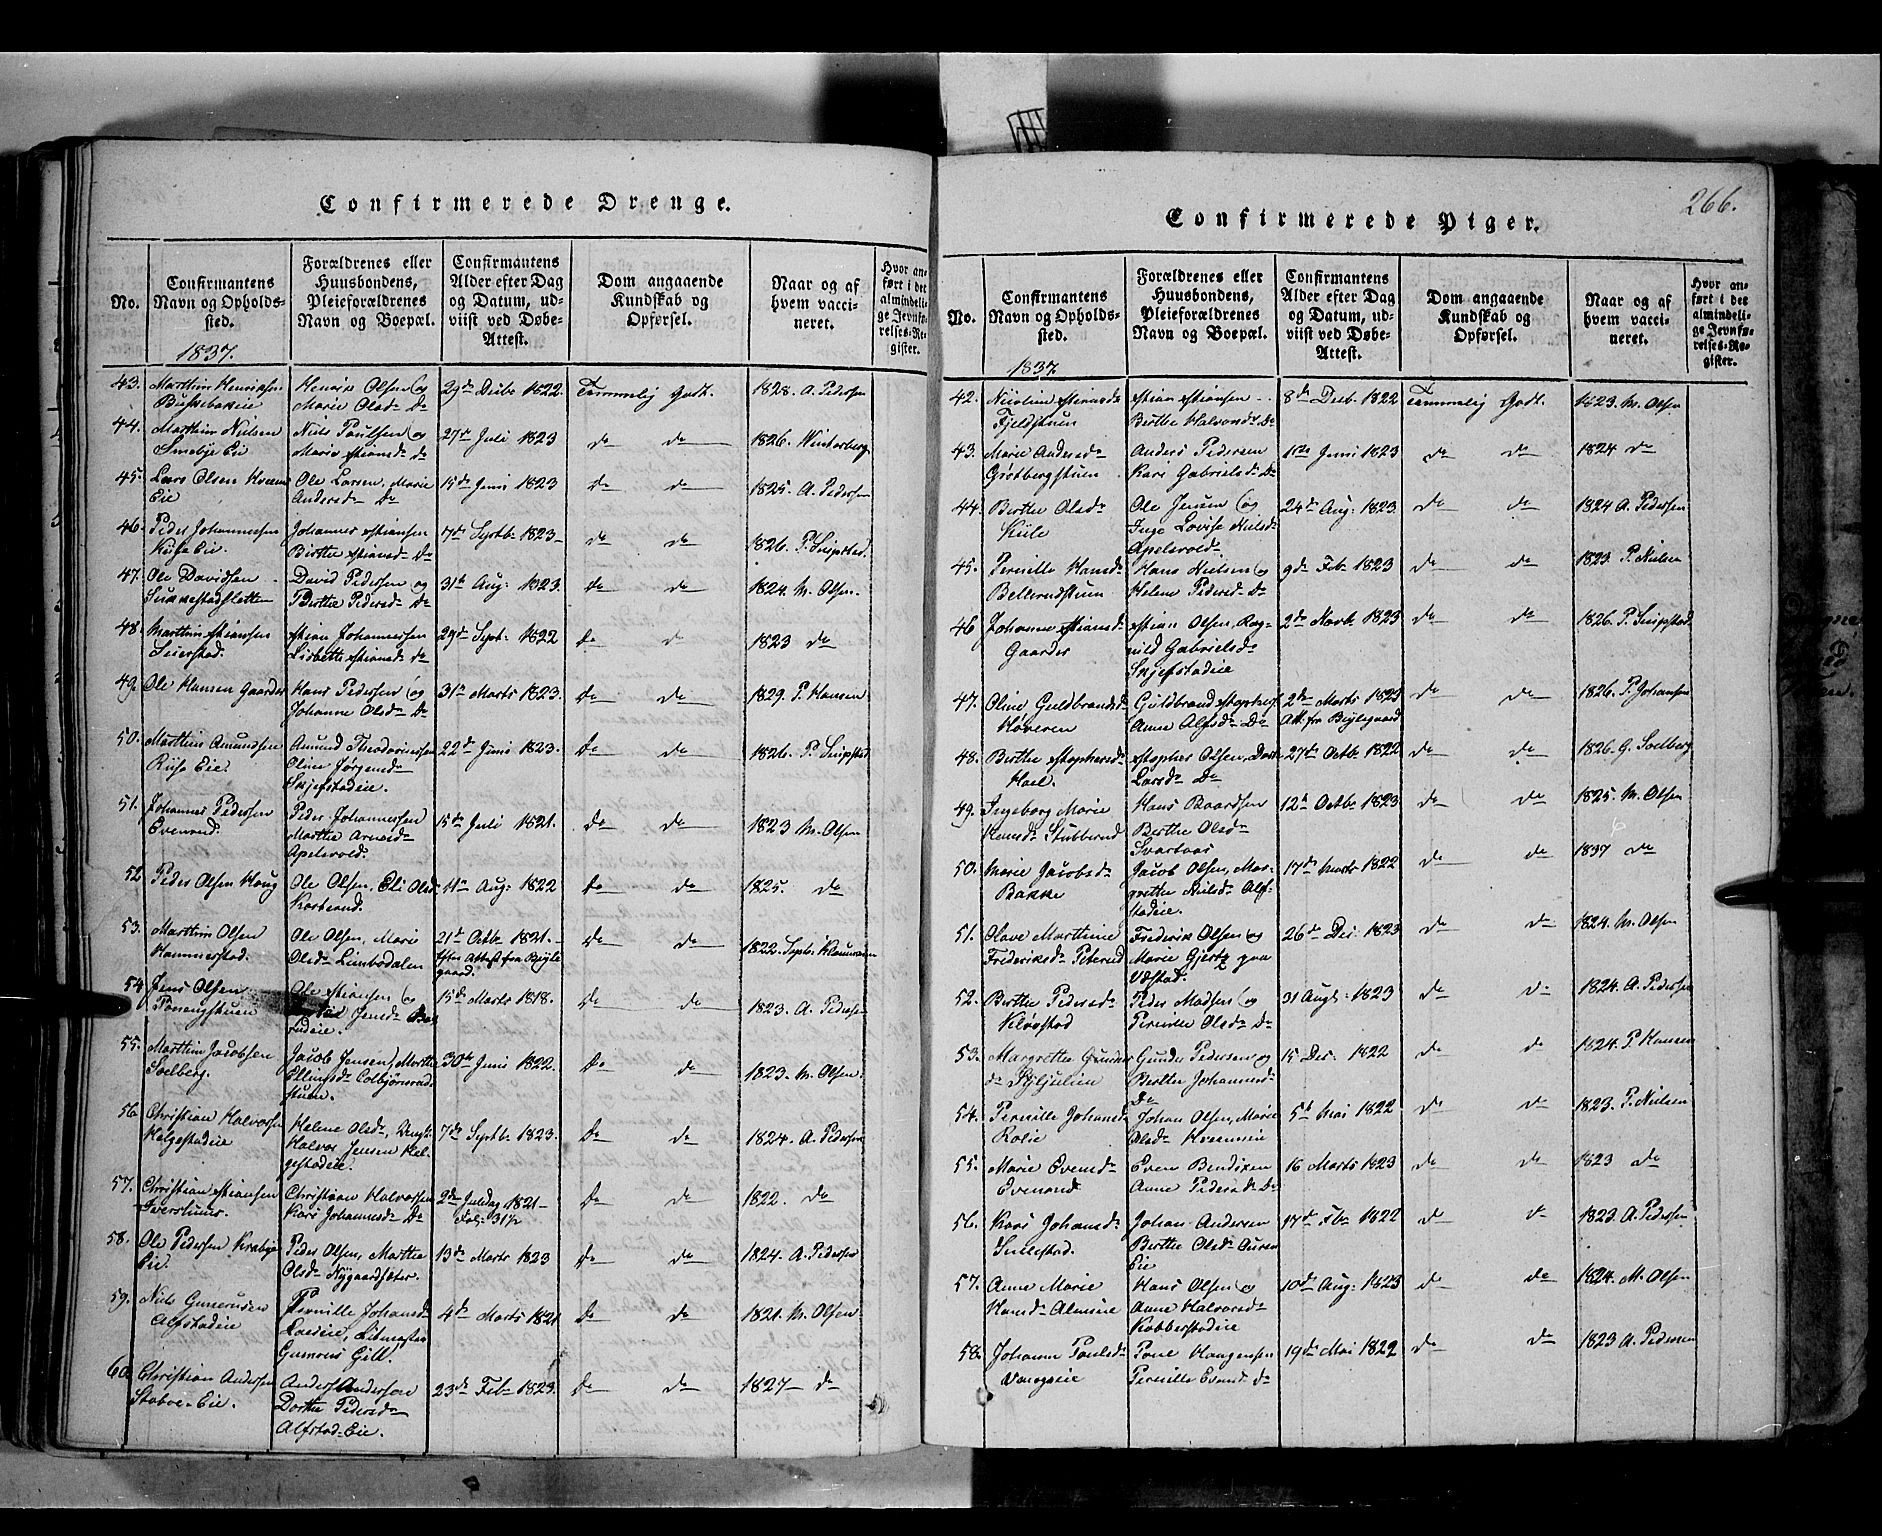 Confirmerede Drenge.
No.
Confirmantens Navn og Opholdssted.
Forældrenes eller Huusbondens, Pleieforældrenes Navn og Boepæl.
Confirmantens Alder efter Dag og Datum, udviist ved Døbe-Attest.
Dom angaaende Kundskab og Opførsel.
Naar og af hvem vaccineret.
Hvor anført i det almindelige Jevnførelses-Register.
1837.
43. Marthin Henriksen Henrik Olsen og 29de Decbr 1822. Temmelig Godt. 1828. A. Pedersen
Marie Olsd. Do
44. Marthin Nielsen Niels Paulsen og 27de Juli 1823 do do 1826. Winterberg
Smebye Eie Marie Xtiansd. do
45. Lars Olsen Ole Larsen, Marie 15de Juni 1823 do do 1825. A. Pedersen
Eie Andersd. Do
46. Peder Johannesen Johannes Xtiansen 7de Septbr. 1823 do do 1826. P. Snipstad
Riise Eie. Birthe Xtiansd. Do
47. Ole Davidsen David Pedersen og 31te Aug: 1823 do do 1824. M. Olsen.
Berthe Pedersd. Do
48. Marthin Xtiansen Xtian Johannessen 29de Sept: 1822 Do do 1823 do
Lisbeth Xtiansd. do
49. Ole Hansen Gaarder Hans Pedersen og 31te Marts 1823. Do do 1829. P. Hansen
Johanne Olsd. Do
50. Marthin Amundsen Amund 22de Juni 1823. Do do 1826. P. Snipstad
Riise Eie. Oline Jørgensd.
Skjefstadeie.
51. Johannes Pedersen Peder Johannessen 15de Juli 1821. Do do 1823 M. Olsen
Evenrud. Marthe Arnesd.
Apelsvold.
52 Peder Olsen Haug Ole Olsen, Eli Olsd. 11te Aug: 1822 Do do 1825. do
53. Marthin Olsen Ole Olsen, Mari 21de Octbr 1821. Do do 1822. Septr.
Hammerstad. Olsd. Limbodalen Efter Attest fra
54 Jens Olsen Ole Xtiansen og 15de Marts 1818. Do do 1823. A. Pedersen
Jensd.
55. Marthin Jacobsen Jacob Jensen, Marthe 30te Juni 1822. Do do 1823. M. Olsen.
Soelberg. Ellingsd.
stuen.
56 Christian Halvorsen Helene Olsd., 7de Septbr. 1823. Do do 1824. A. Pedersen
Helgestadeie Halvor Jensen Helgestadeie.
57. Christian Xtiansen Christian Halvorsen 2den Juledag 1821 Do do 1822. do
Kari Johannesd. Do Fol: 31
58. Ole Pedersen Krabye Peder Olsen, Marthe 13de Marts 1823 Do do 1824. A. Pedersen
Eie. Olsd. Nygaardsæter.
59. Niels Gunerusen Pernille Johansd. 4de Marts 1821 Do do 1821. M. Olsen
Alfstadeie
60 Christian Andersen Anders Andersen 23de Feb. 1823. Do do 1827 do
Staboe-Eie. Dorthe Pedersd.
Alfstad-Eie.
266.
Confirmerede Piger.
No.
Confirmantens Navn og Opholdssted.
Forældrenes eller Huusbondens, Pleieforældrenes Navn og Boepæl.
Confirmantens Alder efter Dag og Datum, udviist ved Døbe-Attest.
Dom angaaende Kundskab og Opførsel.
Naar og af hvem vaccineret.
Hvor anført i det almindelige Jevnførelses-Register.
1837
42. Nicoline Xtiansd. Xtian Xtiansen 8de Decb. 1822 Temmelig Godt. 1823. M. Olsen
Fjeldstuen Berthe Halvorsd. Do
43. Marie Andersd. Anders Pedersen 1ste Juni 1823 do do 1824 do
Grødbergstuen Kari Gabrielsd. Do
44. Berthe Olsd. Ole Jensen og 24de Aug: 1823. do do 1824 A. Pedersen
Kiile Inge Lovise Nielsd.
Apelsvold
45. Pernille Hansd. Hans Nielsen og 9de Feb. 1823 do do 1823. P. Nielsen
Bellerudstuen Helene Pedersd. Do
46 Johanne Xtiansd. Xtian Olsen, Rag- 2de Marts 1823 do do 1826. P. Snipstad
Gaarder nild Gabrielsd.
Skjefstadeie
47. Oline Guldbrandsd. Guldbrand Xtophers. 2de Marts 1823 do do 1826. P. Johansen
Høveren Anne Alfsd. Do Att. fra
48. Berthe Xtophersd. Xtopher Olsen, 27de Octbr 1822 do do 1826. G. Soelberg
Larsd. Do
49. Ingeborg Marie Hans Baardsen 12te Octbr 1823 do do 1825. M. Olsen
Hansd. Stubberud Berthe Olsd.
50. Marie Jacobsd. Jacob Olsen, Mar- 17de Marts 1822 do do 1837 do
Bakke grethe Nielsd. Alf-
stadeie.
51. Olave Marthine Frederik Olsen og 26de Dec: 1823 do do 1824. M. Olsen
Frederiksd. Peterud Marie Gjertz paa
52. Berthe Pedersd. Peder Madsen og 31 Augt: 1823 do do 1824. A. Pedersen
Kløvstad Pernille Olsd. Do
53. Margrethe Gunder Pedersen og 15 Dec. 1822 do do 1824. P. Hansen
Berthe Johannesd.
Do
54. Pernille Johansd. Johan Olsen, Marie 5te Mai 1822 do do 1823. P. Nielsen
Olsd.
55. Marie Evensd. Even Bendixen 16 Marts 1823 do do 1823 do
Evenrud Anne Pedersd. Do
56. Kari Johansd. Johan Andersen 17de Feb. 1822 do do 1823. A. Pedersen
Berthe Olsd.
Eie
57. Anne Marie Hans Olsen og 10de Aug: 1823 do do 1824. M. Olsen
Hansd. Almeie Anne Halvorsd.
Kobberstadeie
58. Johanne Paulsd. Poul Haagensen 19de Mai 1822 do do 1823 A. Pedersen
Pernille Evensd. do